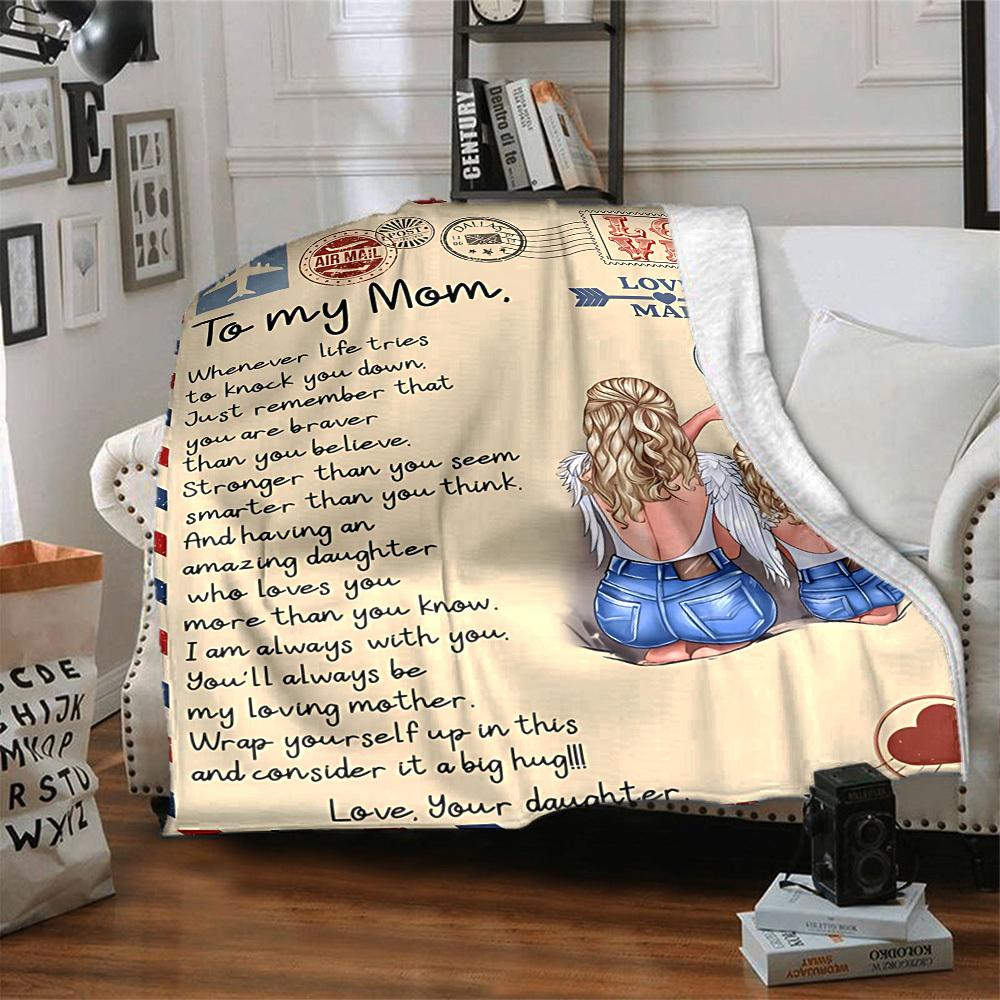 E
CENTURY
Dentro di te
POST
AIR MAIL
DALLAS
LOV
MAI
To my Mom.
Whenever life tries
to knock you down.
Just remember that
you are braver
than you believe.
Stronger than you seem
smarter than you think.
And having an
amazing daughter
who loves you
more than you know.
I am always with you.
You'll always be
my loving mother.
Wrap yourself up in this
and consider it a big hug!!!
Love, Your daughter.
CDE
GHIJK
R STU
WXYZ
ROLLEIFLEX
GRZEGORZ W.
KOŁODKO
WĘDRUJĄCY
ŚWIAT